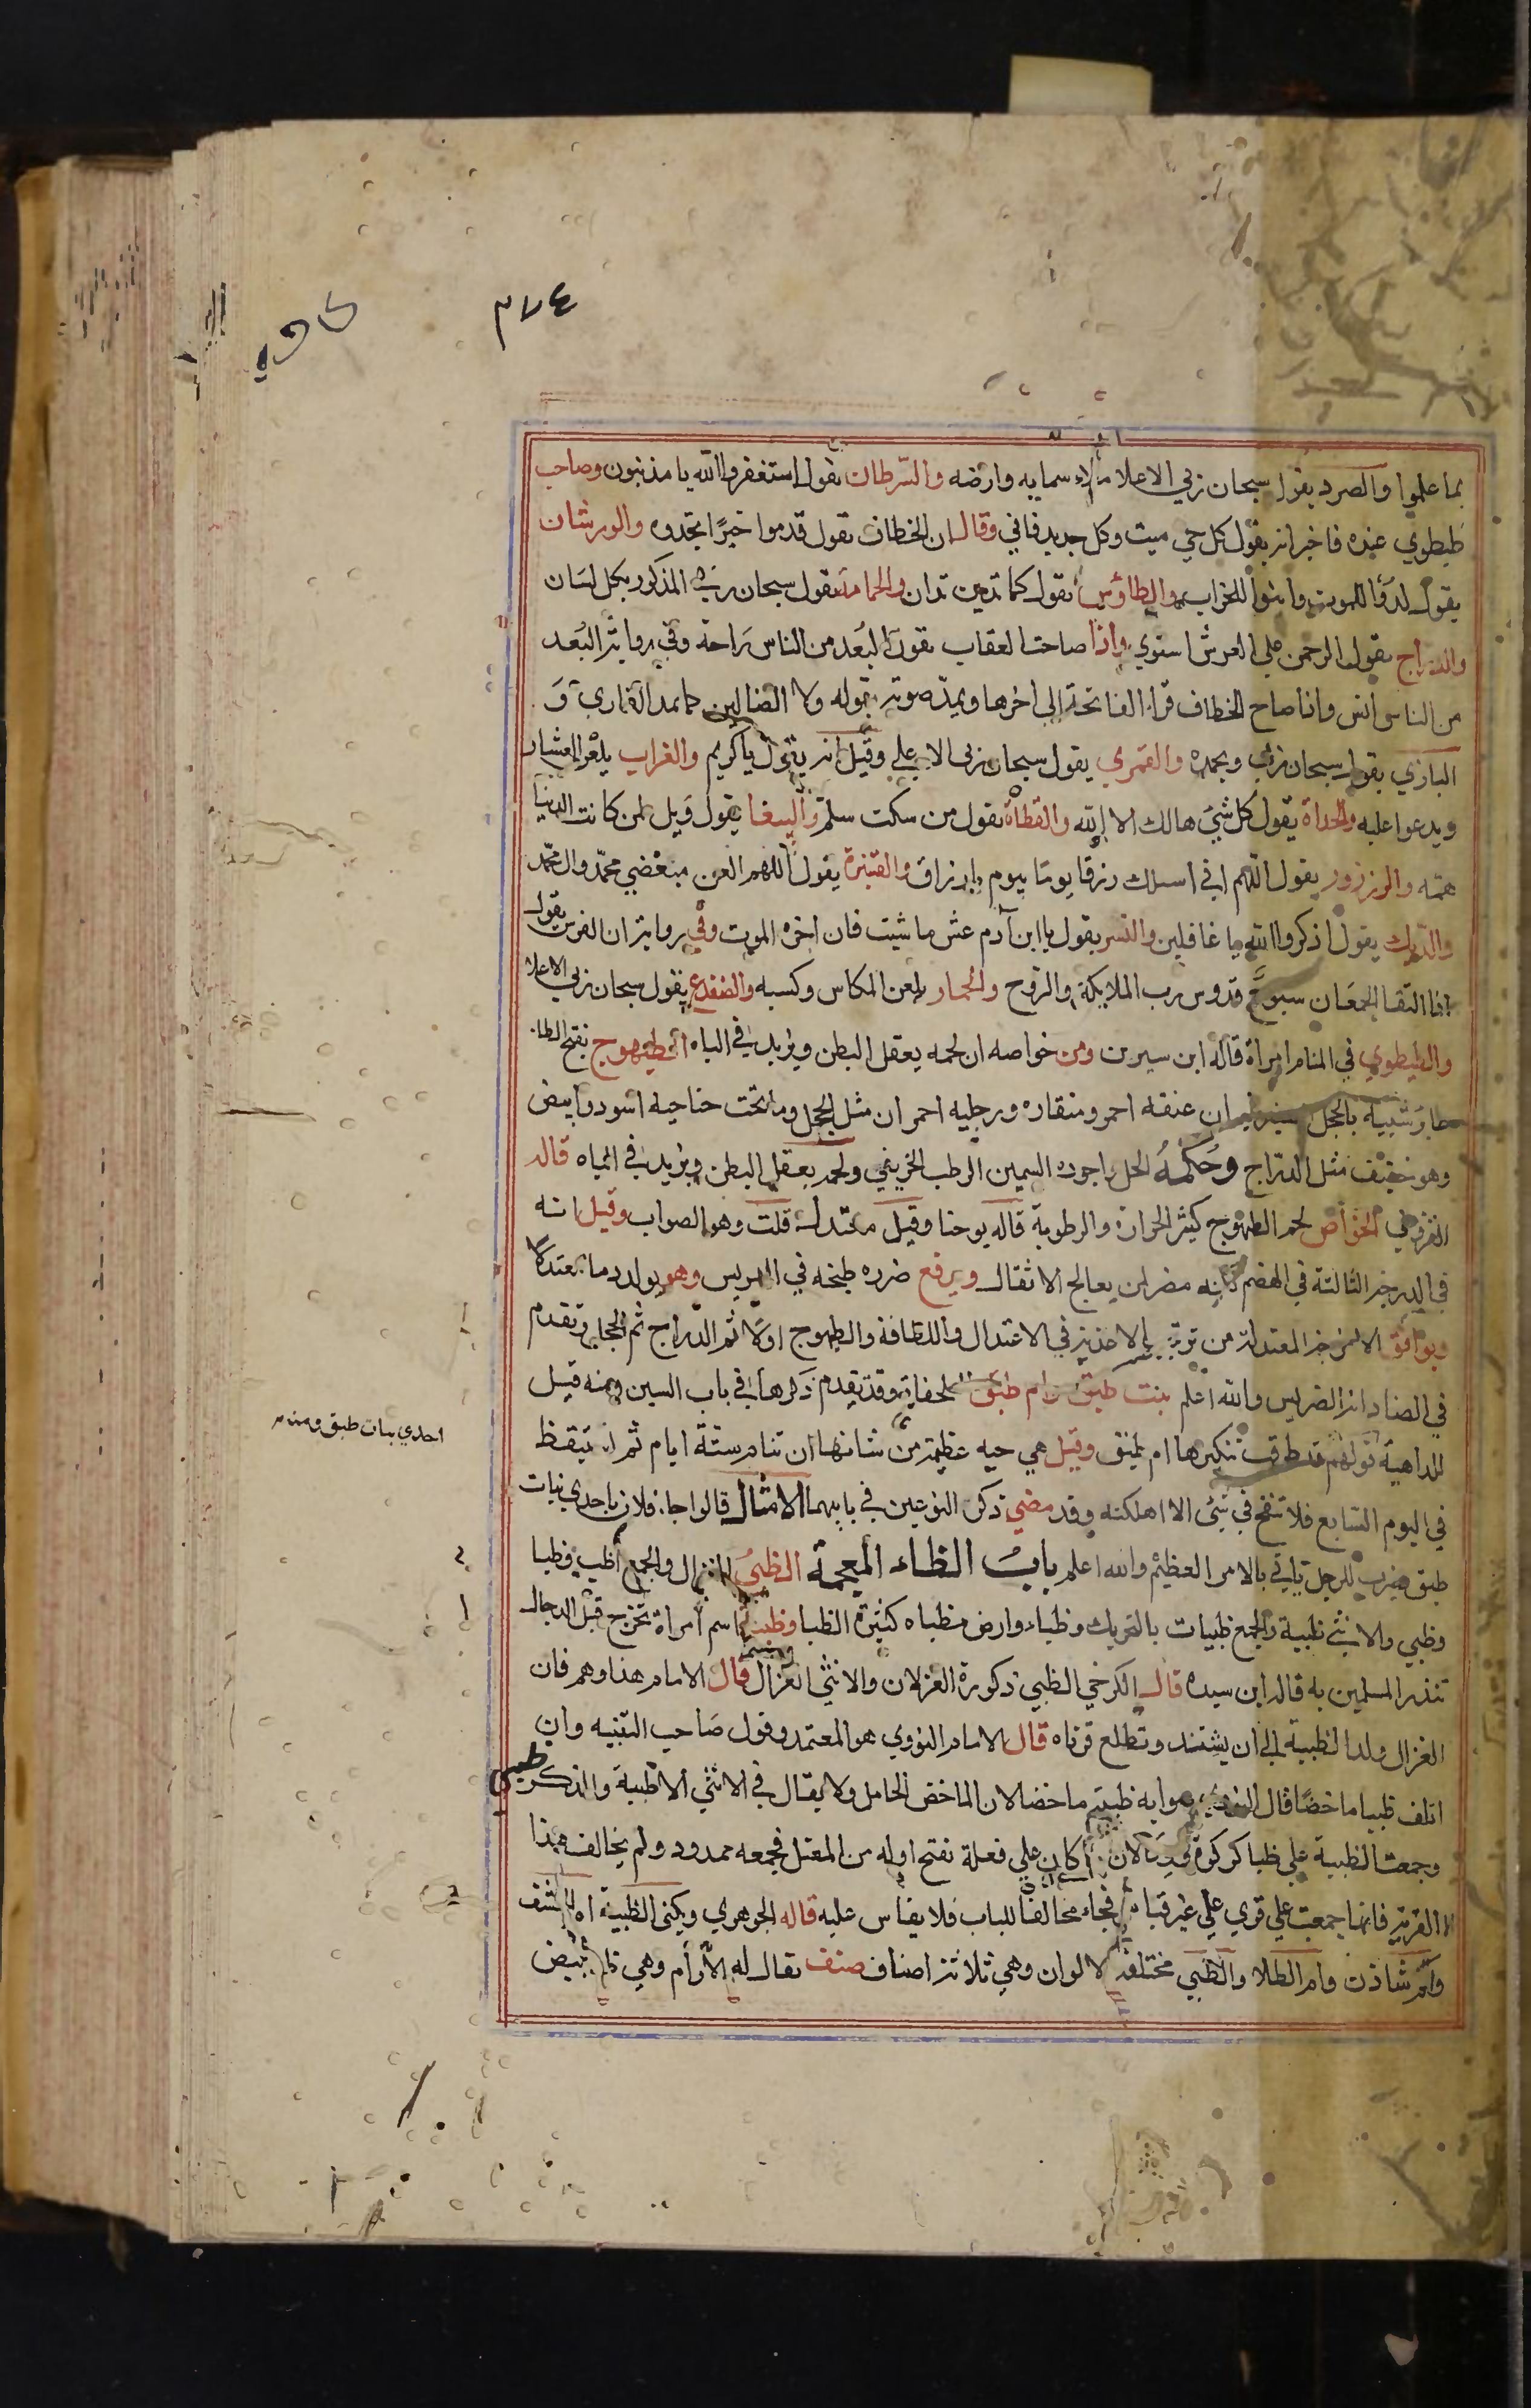 ٣٧٤
بما علموا والصرد يقول سبحان ربي الاعلا ملاء سمايه وارضه والسرطان يقول استغفروا الله يا مذنبون وصاحب
طيطوي عنده فاخبر انه يقول كل حي ميت وكل جديد فاني وقال ان الخطاف يقول قدموا خيرًا تجدوه والورشان
يقول لدوا للموت وابنوا للخراب والطاؤس يقول كما تدين تدان والحمامة تقول سبحان ربي المذكور بكل لسان
والدراج يقول الرحمن علي العرش استوي واذا صاحت العقاب تقول البُعد من الناس راحة وفي رواية البُعد
من الناس انس واذا صاح الخطاف قراء الفاتحة الي اخرها ويمد صوته بقوله ولا الضالين كما يمد القاري وَ
البازي يقول سبحان ربي وبحمده والقمري يقول سبحان ربي الاعلي وقيل انه يقول يا كريم والغراب يلعن العشار
ويدعوا عليه والحداة يقول كل شيء هالك الا الله والقطاة تقول من سكت سلم والببغا يقول ويل لمن كانت الدنيا
همه والزرزور يقول اللهم اني اسلك رزق يوم بيوم يا رزاق والقنبرة يقول اللهم العن مبغضي محمد وال محمد
والديك يقول اذكروا الله يا غافلين والنسر يقول يا ابن آدم عش ما شيت فان اخره الموت وفي رواية ان الفرس يقول
اذا التقا الجمعان سبوح قدوس رب الملايكة والروح والحمار يلعن المكاس وكسبه والضفدع يقول سبحان ربي الاعلا
والطيطوي في المنام امراة قاله ابن سيرين ومن خواصه ان لحمه يعقل البطن ويزيد في الباه الطيهوج بفتح الطا
طاير شبيه بالحجل الصغير غير ان عنقه احمر ومنقاره ورجليه احمران مثل الحجل وما تحت جناحيه اسود وابيض
وهو خفيف مثل الدراج وحكمه الحل واجوده السمين الرطب الخريفي ولحمه يعقل البطن ويزيد في الباه قاله
في الخواص لحم الطيهوج كثير الحرارة والرطوبة قاله يوحنا وقيل معتدل قلت وهو الصواب وقيل انه
في الدرجة الثالثة في الهضم لكنه مضر لمن يعالج الاثقال ويرفع ضرره طبخه في الهريس وهو يولد دما معتدلا
ويوافق الامزجة المعتدلة من الاغذية في الاعتدال واللطافة والطيهوج اولا ثم الدراج ثم الحجل وتقدم
في الضاد انه الضريس والله اعلم بنت طبق وام طبق السلحفاة وقد تقدم ذكرها في باب السين ومنه قيل
للداهية قولهم قد طرقت ببكرها ام طبق وقيل هي حيه عظيمة من شانها ان تنام ستة ايام ثم تتيقظ
في اليوم السابع فلا تنفخ في شي الا اهلكته وقد مضي ذكر النوعين في بابهما الامثال قالوا جا فلان باحدي بنات
احدي بنات طبق ومنه
طبق يضرب للرجل ياتي بالامر العظيم والله اعلم باب الظاء المعجمة الظبي الغزال والجمع أظبٍ وظبا
وظبي والانثي ظبية والجمع ظبيات بالتحريك وظباء وارض مظباه كثيرة الظبا وظبية اسم امراة تخرج قبل الدجال
تنذر المسلمين به قاله ابن سيده قال الكرخي الظبي ذكورة الغزلان والانثي الغزال قال الامام هذا وهم فان
الغزال ولد الظبية الي ان يشتد وتطلع قرناه قال الامام النووي هو المعتمد وقول صاحب التنبيه وان
اتلف ظبيا ماخضًا قال النووي صوابه ظبية ماخضا لان الماخض الحامل ولا يقال في الانثي الا ظبية والذكر ظبي
وجمعت الظبية علي ظبا كركوة لان كان علي فعلة بفتح اوله من المعتل فجمعه ممدود ولم يخالف هذا
الا القرية فانها جمعت علي قري علي غير قياس فجاء مخالفا للباب فلا يقاس عليه قاله الجوهري ويكني الظبية ام الخشف
وام شاذن وام الطلا والظبي مختلفة الالوان وهي ثلاثة اصناف صنف يقال له الأرأم وهي بيض